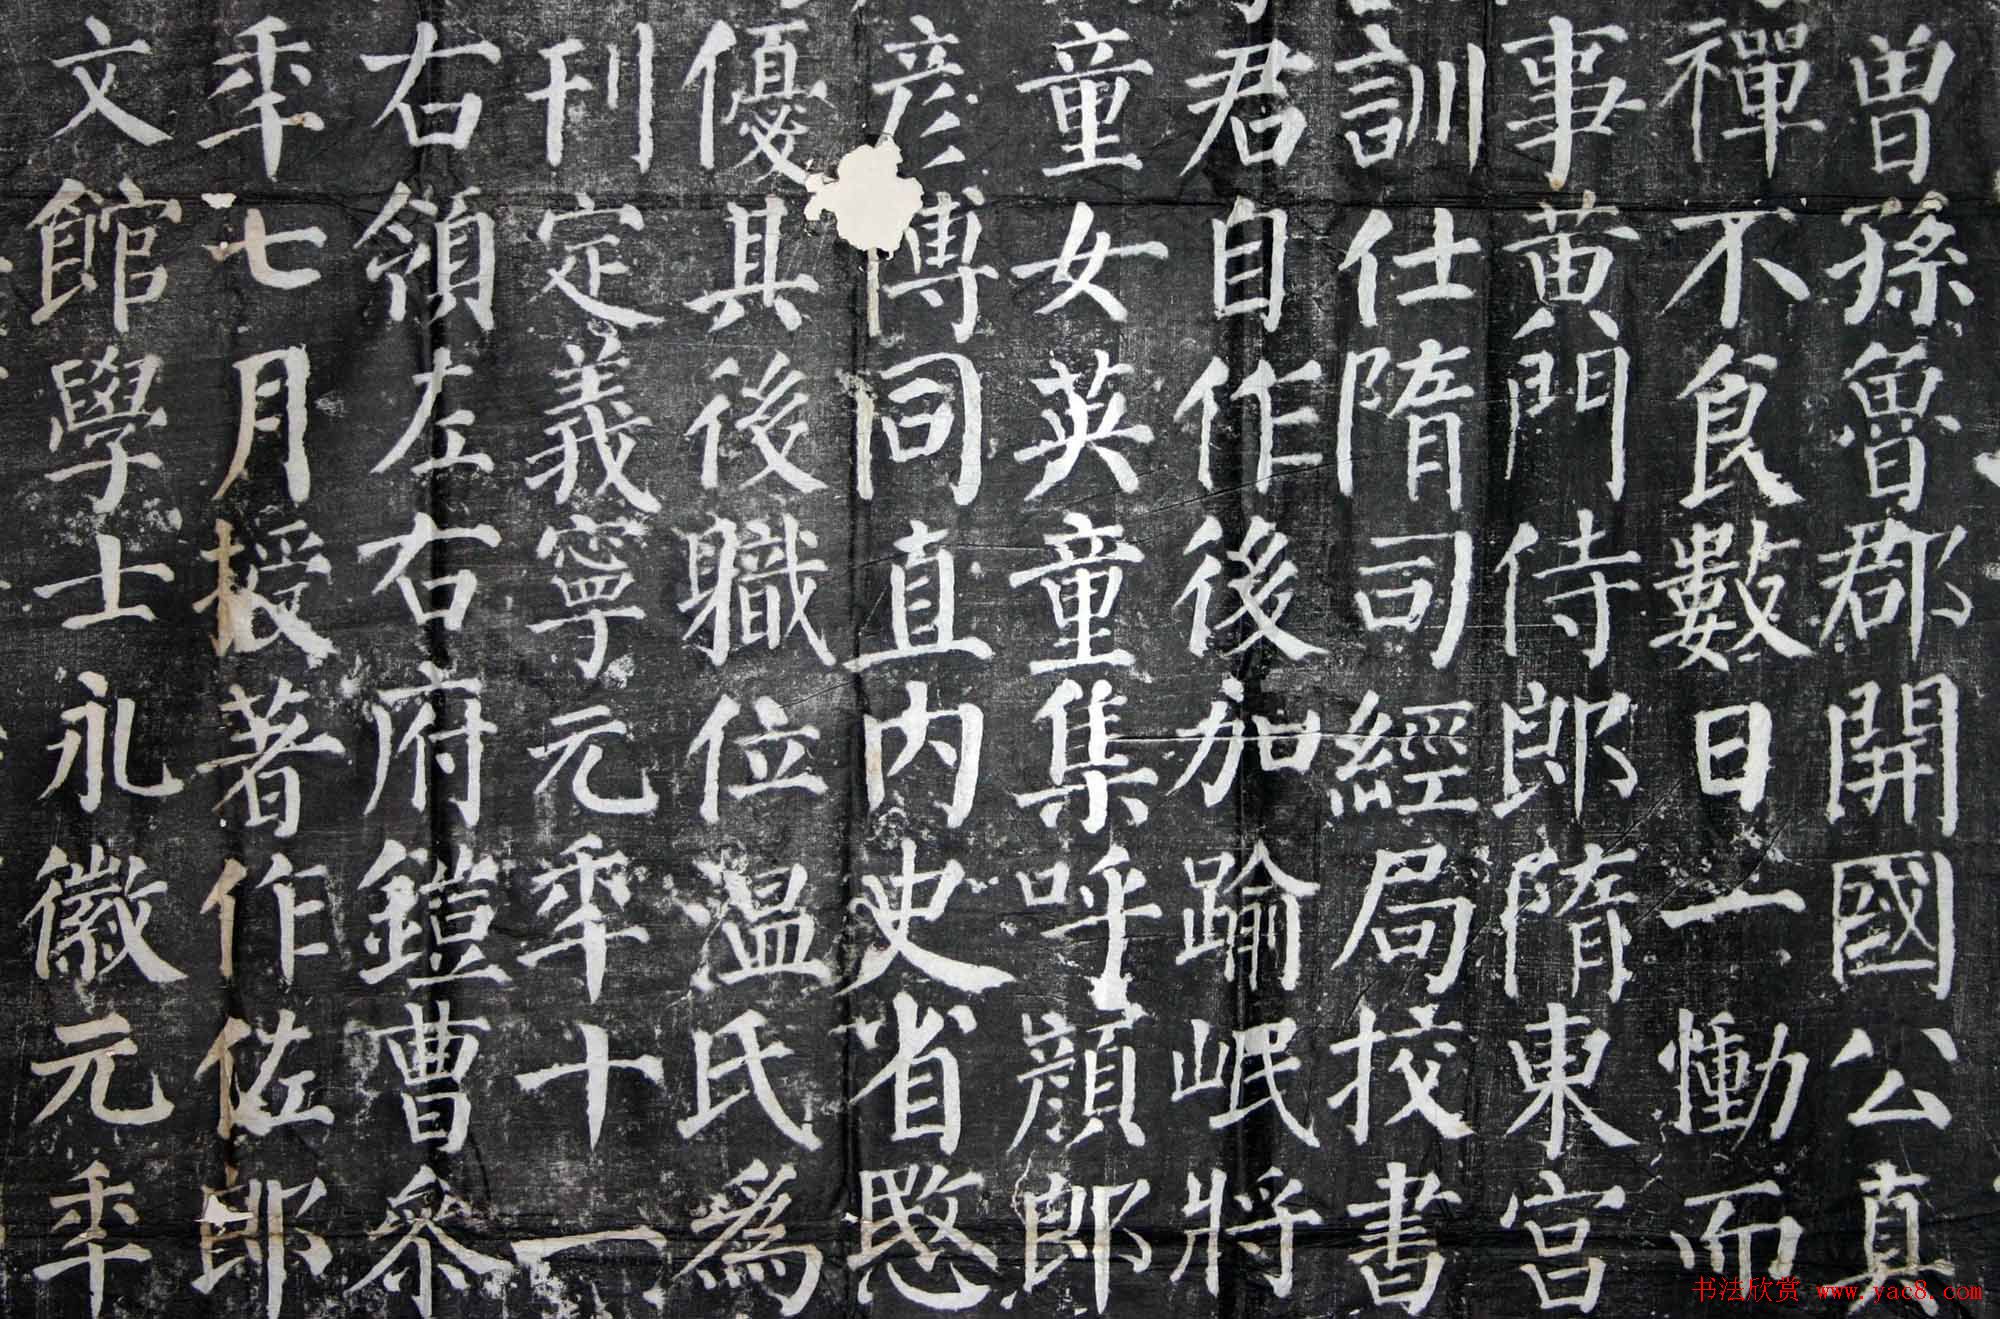 曾孫魯郡開國公真
禪不食數日一慟而
事黃門侍郎隋東宮
訓仕隋司經局挍書
君自作後加踰岷將
童女英童集呼顏郎
彦博同直内史省愍
優具後職位温氏為
刊定義寧元年十一
右領左右府鎧曹叅
年七月授著作佐郎
文館學士永徽元年
书法欣赏 www.yac8.com